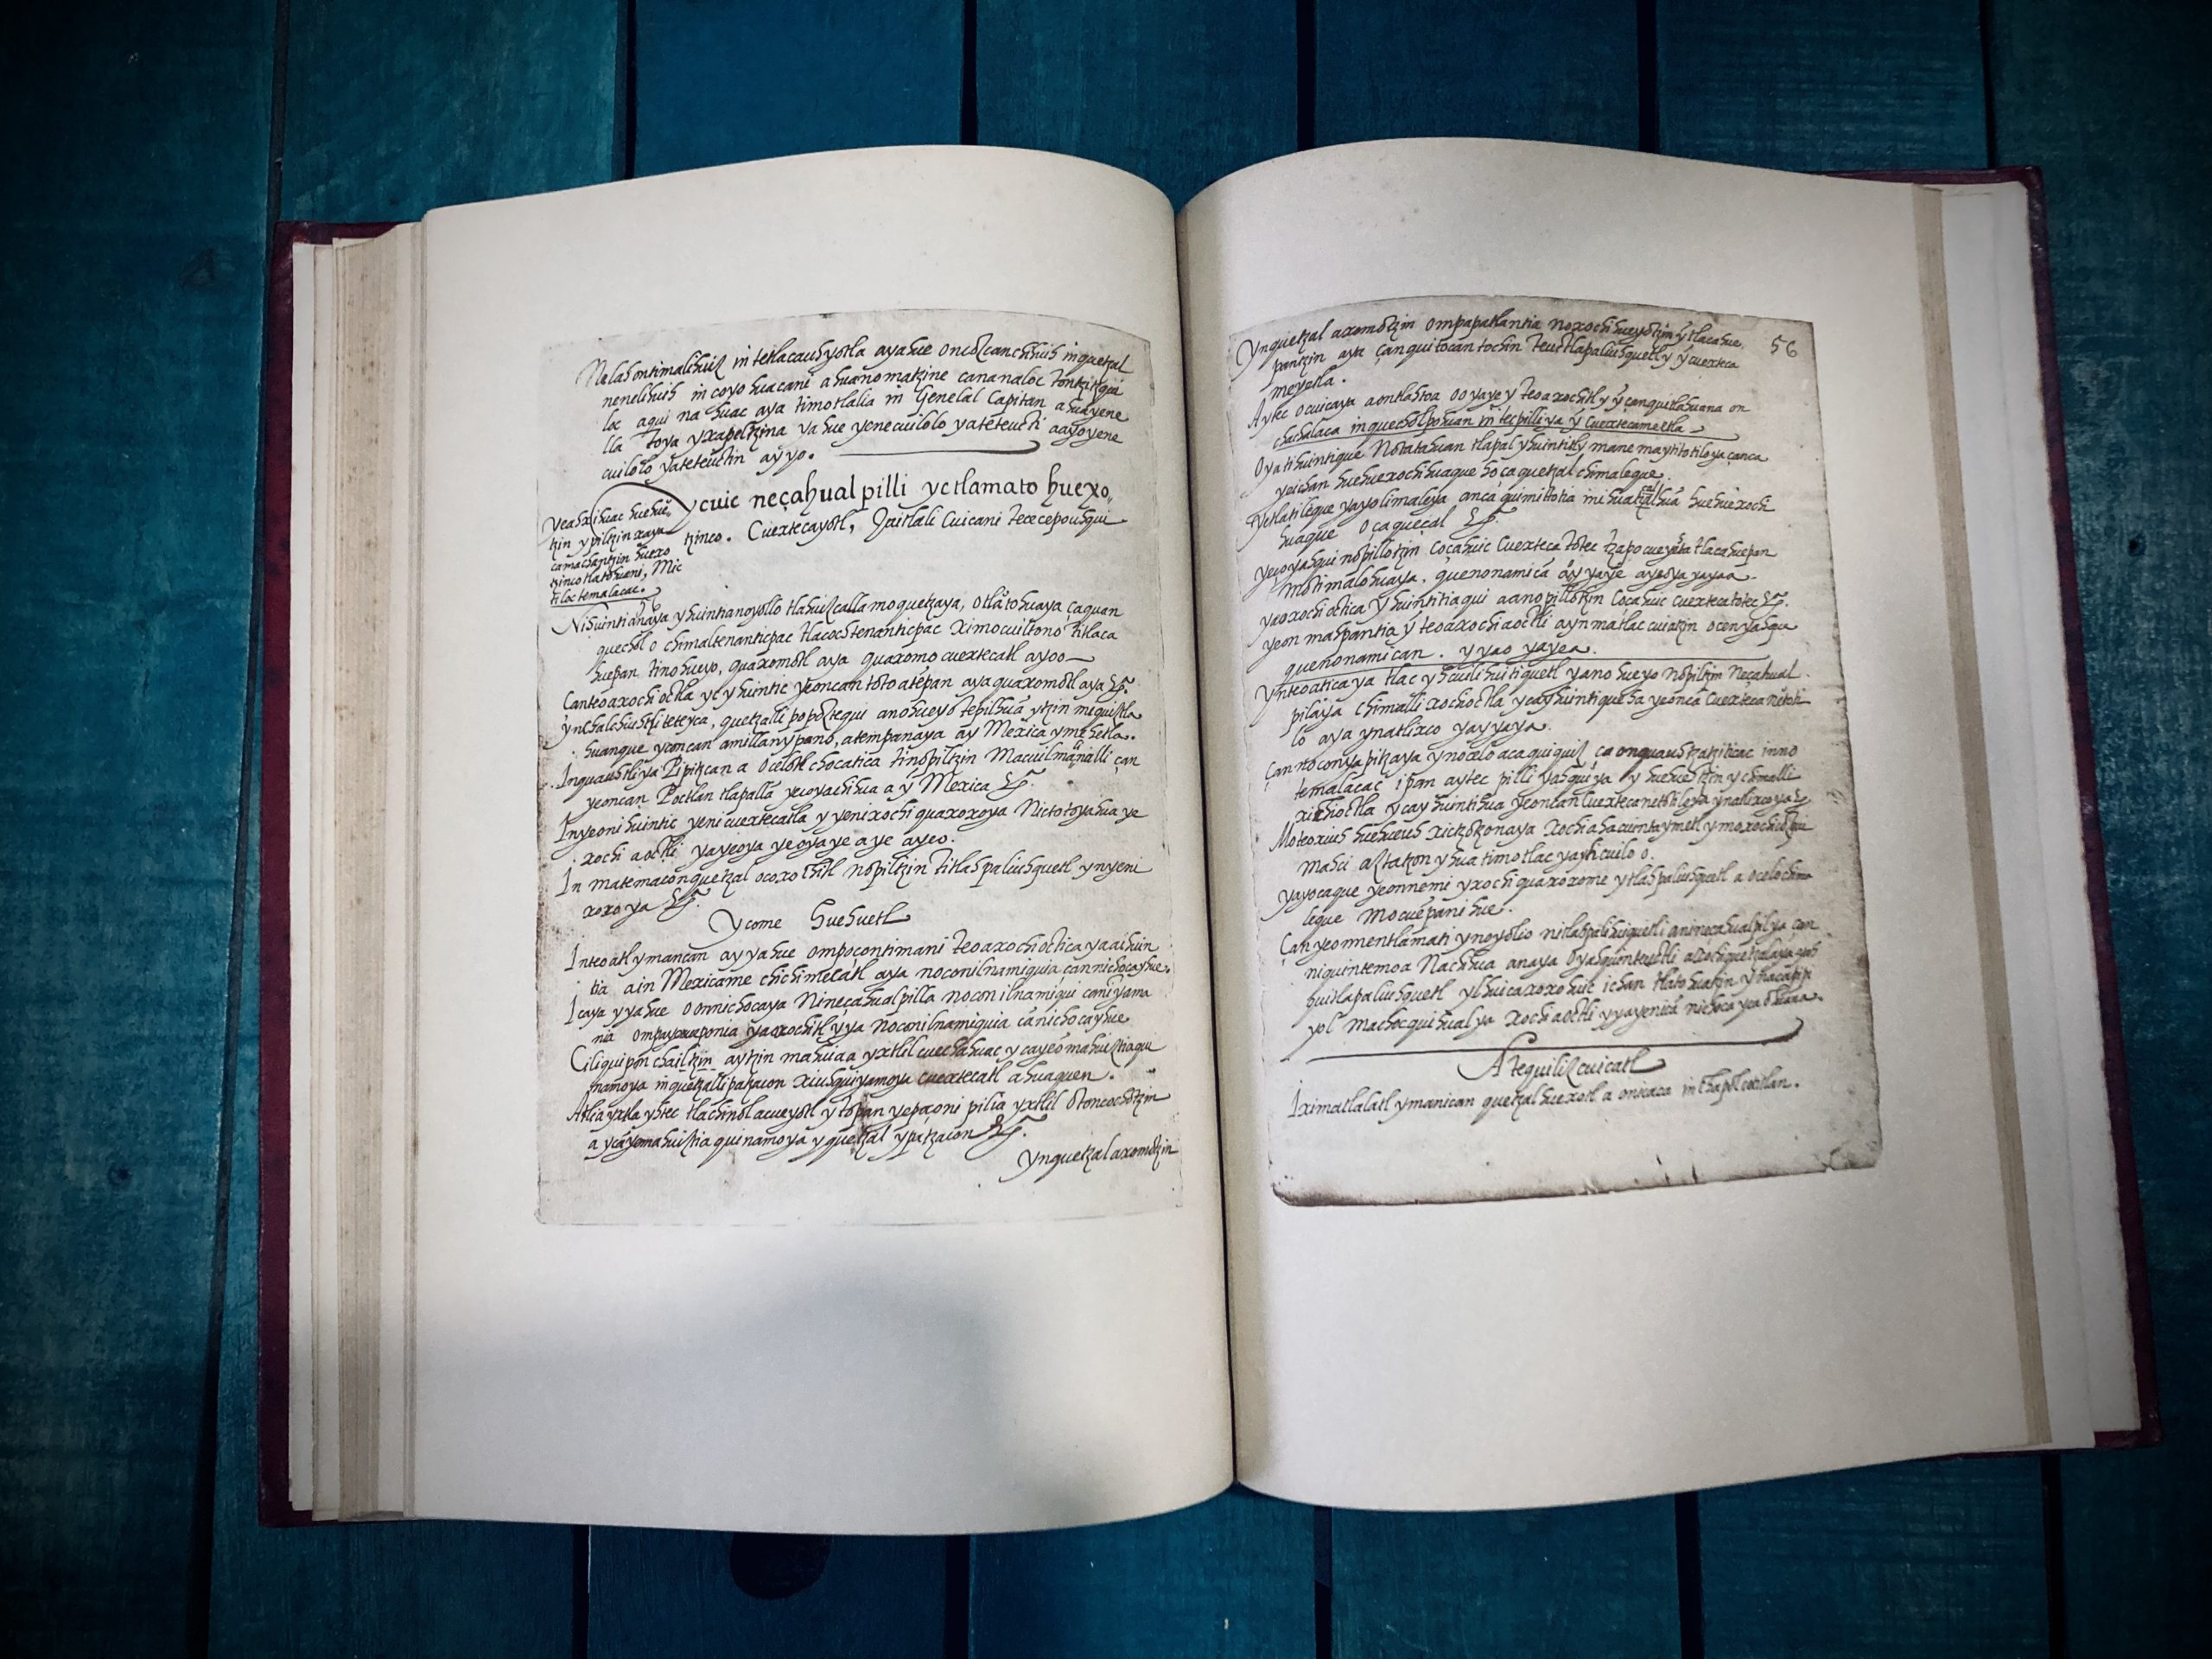 Nelah ontimalihuiz in tetlacauhyotla ayahue oncozcanchihuih inquetzal
nenelihuih in coyohuacani ahuanomatzine cananaloc tontzitzqui
loc aqui na huac aya timotlalia in Genelal Capitan ahuayene
lla Toya yxapeltzina yahue yenecuilolo yateteucti aayoyene
cuilolo yateteuctin ayyo.
ycuic neçahualpilli yc tlamato huexo
tzinco. Cuextecayotl, Quitlali cuicani tececepouhqui
Yeahxihuac huehue
tzin ypiltzin xaya
camachantzin huexo
tzinco tlatohuani, Mic
tiloc temalacac.
Nihuintianaya yhuintia noyollo tlahuizcalla moquetzaya, otlatohuaya çaquan
quechol o chimaltenanticpac tlacochtenanticpac Ximocuiltono titlaca
huepan tinohueyo, quaxomotl aya quaxomo cuextecatl ayoo
Canteoaxochioctla yc yhuintic yeoncan totoatepan ayaquaxomotl aya &c.
ynchalchiuhtli teteyca, quetzalli popoztequi anohueyo tepilhua ytzin miquiztla
huanque yeoncan amillanypano, atempanaya ay Mexica ymehetla.
Inquauhtliya Pipitzcan a ocelotl chocatica tinopiltzin Macuilmalinalli çan
yeoncan Poctlan tlapalla yecoyachihua a y Mexica &c.
Inyeonihuintic yenicuextecatla y yenixochiquaxoxoya Nictotoyahua ye
xochiaoctli yayeoya yeoyaye aye ayeo.
In matemacon quetzalocoxochitl nopiltzin titlahpaliuhquetl ynyeni
xoxoya &c.
Ycome huehuetl
Inteoatlymancan ayyahue ompoçontimani teoaxochioctica yaaihuin
tia ain Mexicame chichimecatl aya noconilnamiquia cannichocayhue.
Icaya yyahue oonnichocaya Nineçahualpilla noconilnamiqui caniyama
nia ompaycueponia yaoxochitl yya noconilnamiquia canichocayhue
Ciliquipon chailtzin aytzin mahuiaa yxtlilcuechahuac ycayeomahuiztiaqui
namoya inquetzallipatzacon xiuhquiyamoya cuextecatl ahuaquen.
Atliayxtla yhtec tlachinolacueyotl ytopan yepoçoni pilia yxtlil Otoncochotzin
a ycayomahuiztia quinamoya yquetzal ypatzacon &c.
Ynquetzalaxomotzin
56
Ynquetzal axomotzin ompapatlantia noxochihueyotzin y tlacahue
pantzin aya çanquitocan tochin Teuctlapaliuhquetl y y cuexteca
meyetla.
Aytec ocuicaya aontlahtoa ooyaye y Teoaxochitl y y çanquitlahuana on
chachalaca inquecholpohuan in tecpilliya y Cuextecameetla
Oyatihuintique Notatahuan tlapal yhuintitly mane maytitotiloyaçanca
yeichan huehuexochihuaque ho ca quetzalchimaleque
yetlatileque yayolimaleya anca quimittotia mihuatzalhua huehuexochi
huaque oçaqueçal &c.
yecoyahqui nopillotzin coçahuic cuexteca totec tzapocueyeta tlacahuepan
motimalohuaya. quenonamica ayyaye ayeoyayayaa.
yaoxochioctica yhuintitiaqui aanopillotzin coçahuic cuextecatotec &c.
yeon mahpantia y teoaxochiaoctli ayn matlaccuiatzin ocenyahqu
quenonamican. yyao yayea.
ynteoaticaya tlac yhcuilihuitiquetl yanohueyo nopiltzin Neçahual.
pilaya chimallixochioctla ycayhuintiqueha yeonca cuexteca netoti
lo aya ynatlixco yayyaya.
Can noconyapitzaya ynocelo acaquiquiz ça onquauhtzatziticac inno
temalacac ipan aytec pilli yahquiya y huehuetzin ychimalli
xochioctla ycayhuintihua yeoncan cuextecanetotiloya ynatlixcoya &c
Moteoxiuh huehueuh xictzotzonaya Xochiahacuinta ymetl ymoxochioqui
mahci aztatzon yhua timotlac yayticuilo o.
Yayocaque yeonnemi yxochiquaxoxome ytlahpaliuhquetl a ocelochima
leque mocuepani hue.
Çan yeonnentlamati ynoyolio nitlahpalihuiquetli anineçahualpil ya çan
niquintemoa Nachihua anaya Oyahquinteuctli
quitlapaliuhquetl ylhuicaxoxohuic ichan tlatohuatzin
yol machocquihualya xochiaoctli yyayenica nichoca yea ohuaya.
Atequilizcuicatl
Iximatlalatl ymanican quetzalhuexotl a onicaca in Chapoltecitlan.